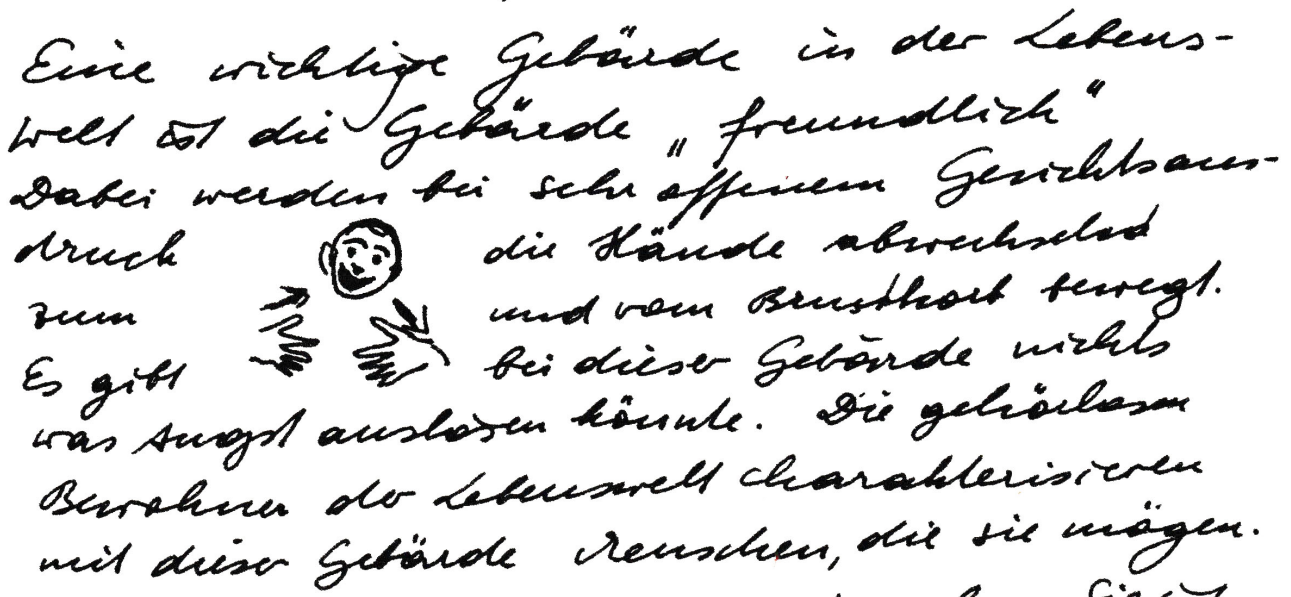 Eine wichtige Gebärde in der Lebens-
welt ist die Gebärde „freundlich“
Dabei werden bei sehr offenem Gesichtsaus-
druck die Hände abwechselnd
zum und vom Brustkorb bewegt.
Es gibt bei dieser Gebärde nichts
was Angst auslösen könnte. Die gehörlosen
Bewohner der Lebenswelt charakterisieren
mit dieser Gebärde Menschen, die sie mögen.